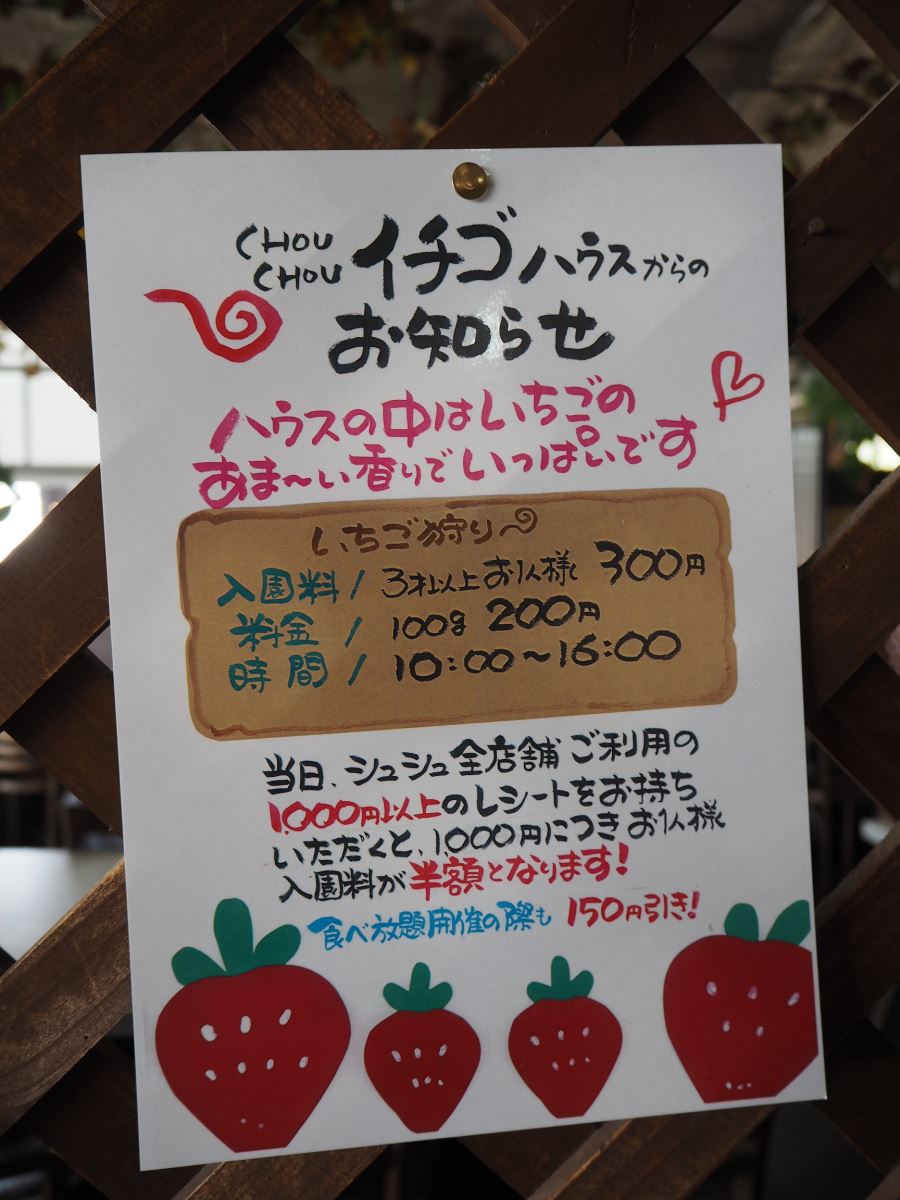 CHOU CHOU イチゴハウスからの
お知らせ
ハウスの中はいちごの
あま〜い香りでいっぱいです
いちご狩り
入園料/3才以上お1人様 300円
料金/100g 200円
時間/10:00〜16:00
当日、シュシュ全店舗ご利用の
1,000円以上のレシートをお持ち
いただくと、1,000円につきお1人様
入園料が半額となります!
食べ放題開催の際も 150円引き!